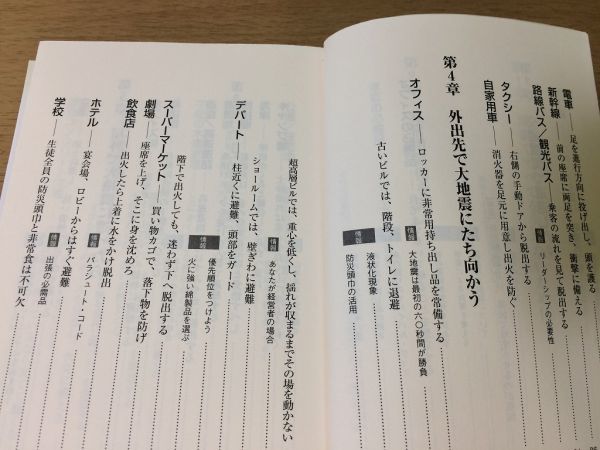 電車――足を進行方向に投げ出し、頭を護る
新幹線――前の座席に両足を突き、衝撃に備える
情報 リーダーシップの必要性
路線バス／観光バス――乗客の流れを見て脱出する
タクシー――右側の手動ドアから脱出する
自家用車――消火器を足元に用意し出火を防ぐ
第4章 外出先で大地震にたち向かう
オフィス――ロッカーに非常用持ち出し品を常備する
情報 大地震は最初の六〇秒間が勝負
古いビルでは、階段、トイレに退避
情報 液状化現象
情報 防災頭巾の活用
超高層ビルでは、重心を低くし、揺れが収まるまでその場を動かない
情報 あなたが経営者の場合
ショールームでは、壁ぎわに避難
デパート――柱近くに避難、頭部をガード
情報 優先順位をつけよう
情報 火に強い綿製品を選ぶ
階下で出火しても、迷わず下へ脱出する
スーパーマーケット――買い物カゴで、落下物を防げ
劇場――座席を上げ、そこに身を沈めろ
飲食店――出火したら上着に水をかけ脱出
情報 パラシュート・コード
ホテル――宴会場、ロビーからはすぐ避難
情報 出張の必需品
学校――生徒全員の防災頭巾と非常食は不可欠